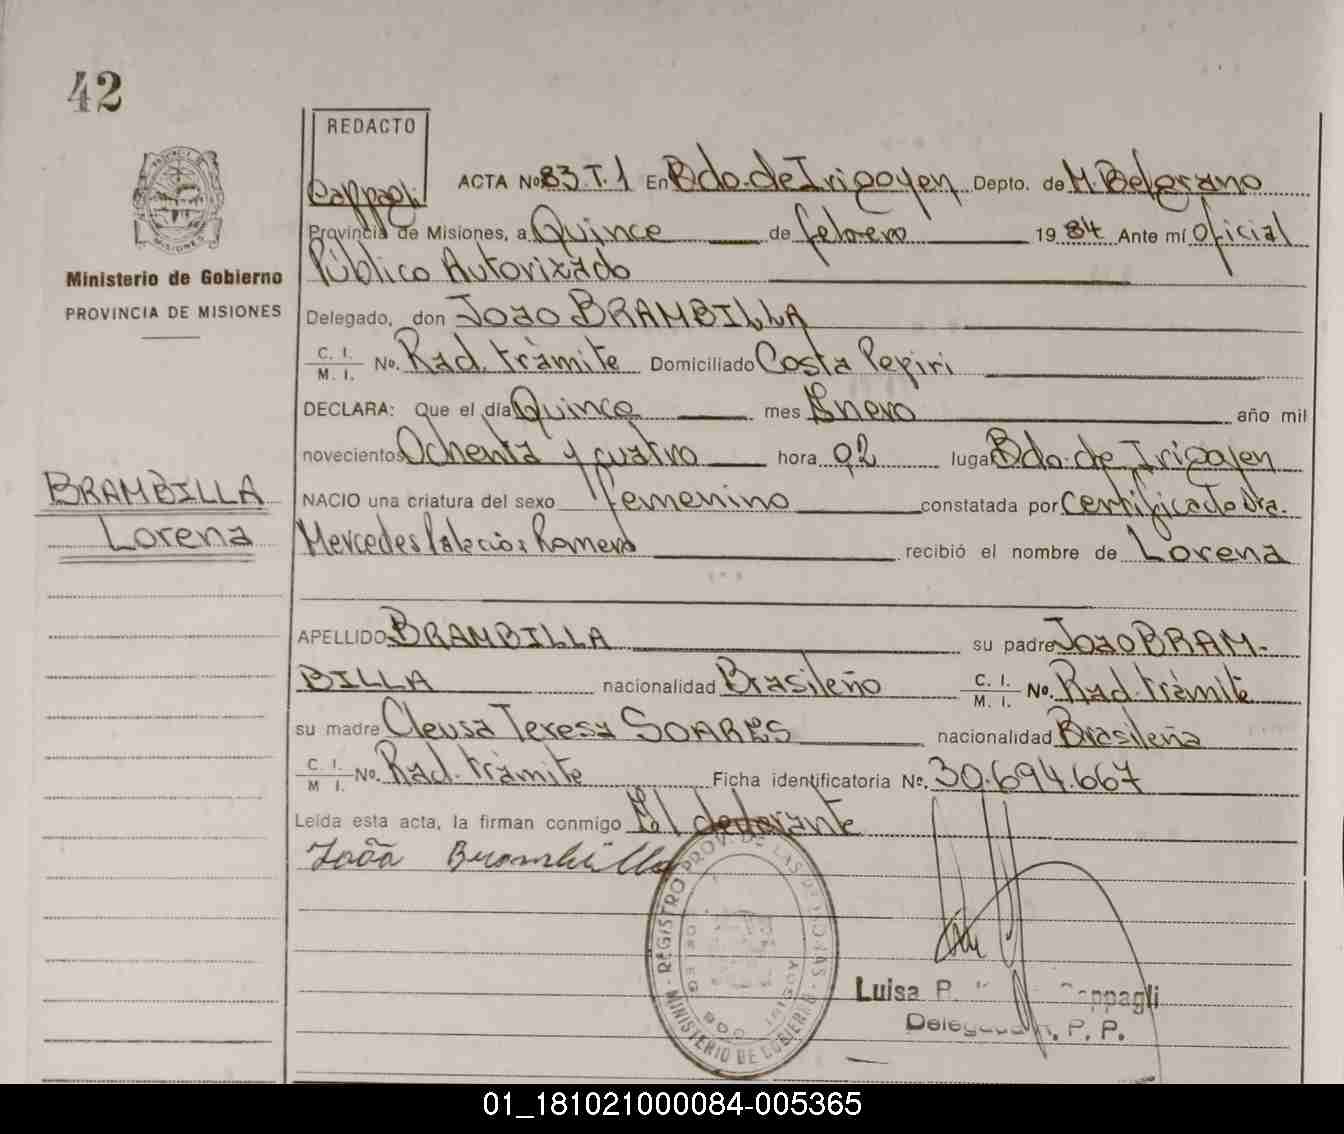 42
REDACTO
Cappagli
ACTA No 83.T.1 En Bdo. de Irigoyen Depto. de M. Belgrano
Provincia de Misiones, a Quince de febrero 19 84 Ante mí Oficial
Público Autorizado
Ministerio de Gobierno
PROVINCIA DE MISIONES
Delegado, don Joao BRAMBILLA
C. I. M. I. No. Rad. tràmite Domiciliado Costa Pepiri
DECLARA: Que el día Quince mes Enero año mil
novecientos Ochenta y cuatro hora 02 lugar Bdo. de Irigoyen
BRAMBILLA
Lorena
NACIO una criatura del sexo femenino constatada por Certificado Dra.
Mercedes Palacios Romero recibió el nombre de Lorena
APELLIDO BRAMBILLA su padre Joao BRAM-
BILLA nacionalidad Brasileño C. I. M. I. No. Rad. tràmite
su madre Cleusa Teresa SOARES nacionalidad Brasileña
C. I. M I. No. Rad. tràmite Ficha identificatoria No. 30.694.667
Leída esta acta, la firman conmigo El declarante
João Brambilla
REGISTRO PROV. DE LAS PERSONAS
MINISTERIO DE GOBIERNO
Luisa P. Cappagli
Delegada R. P. P.
01_181021000084-005365